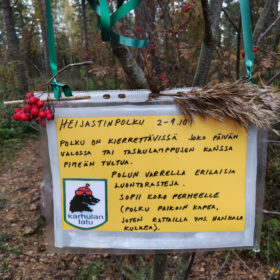 HEIJASTINPOLKU 2-9.10!
POLKU ON KIERRETTÄVISSÄ JOKO PÄIVÄN
VALOSSA TAI TASKULAMPPUJEN KANSSA
PIMEÄN TULTUA.
POLUN VARRELLA ERILAISIA
LUONTORASTEJA.
SOPII KOKO PERHEELLE
(POLKU PAIKOIN KAPEA,
JOTEN RATTAILLA YMS. HANKALA
KULKEA).
karhulan
latu